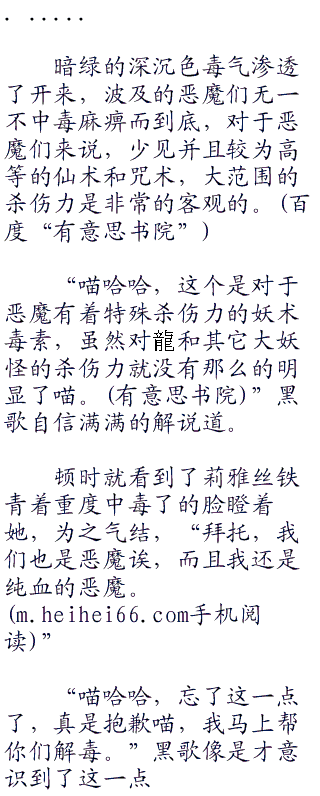 . .....
暗绿的深沉色毒气渗透
了开来，波及的恶魔们无一
不中毒麻痹而到底，对于恶
魔们来说，少见并且较为高
等的仙术和咒术，大范围的
杀伤力是非常的客观的。(百
度“有意思书院”)
“喵哈哈，这个是对于
恶魔有着特殊杀伤力的妖术
毒素，虽然对龍和其它大妖
怪的杀伤力就没有那么的明
显了喵。(有意思书院)”黑
歌自信满满的解说道。
顿时就看到了莉雅丝铁
青着重度中毒了的脸瞪着
她，为之气结，“拜托，我
们也是恶魔诶，而且我还是
纯血的恶魔。
(m.heihei66.com手机阅
读)”
“喵哈哈，忘了这一点
了，真是抱歉喵，我马上帮
你们解毒。”黑歌像是才意
识到了这一点